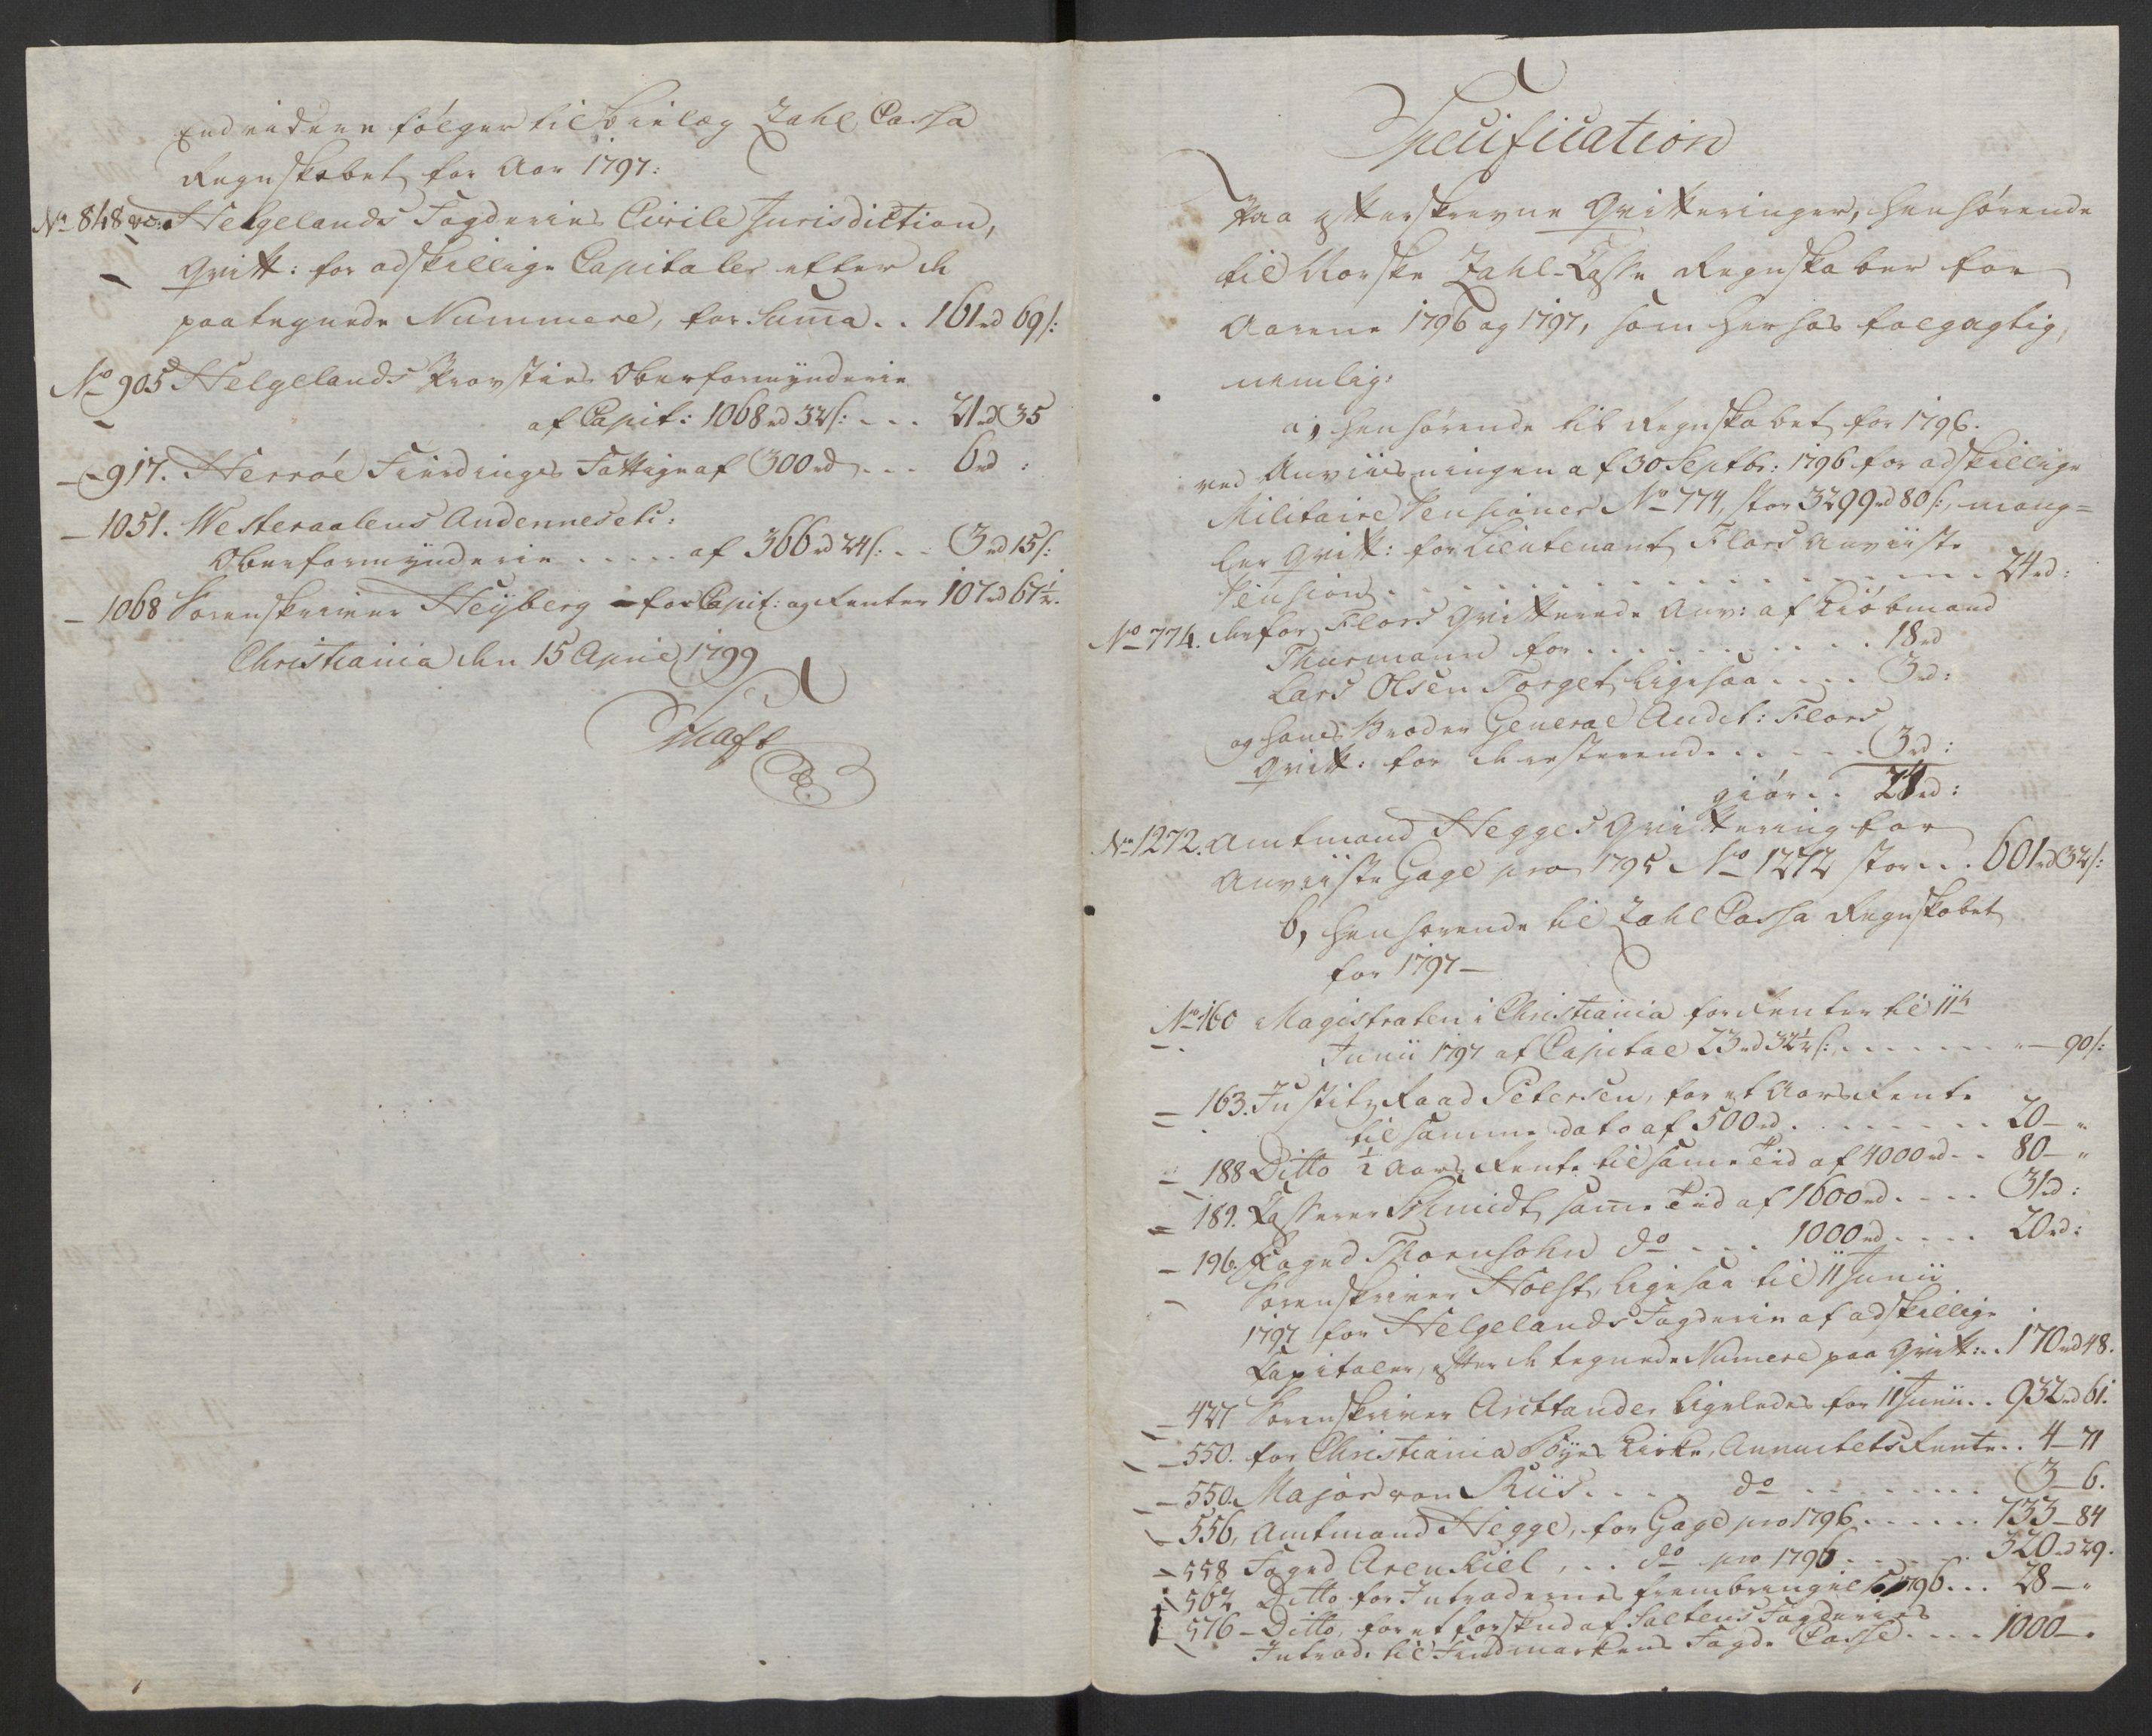 Endvidere følger til Bielag Zahl Cassa
Regnskabet for Aar 1797:
No 848 Helgelands Fogderies Civile Jurisdiction,
Qvitt: for adskillige Capitaler efter de
paategnede Nummere, for Suma .. 161rd 69s:
No 905 Helgelands Provsties Oberformynderie
af Capit: 1068rd 32s: ... 21rd 35
- 917. Herröe Fierdings Fattige af 300rd ... 6rd :
- 1051. Westeraalens Andennes etc:
Oberformynderie ..... af 366rd 24s: .. 3rd 15s:
- 1068 Sorenskriver Heyberg - for Capit: og Renter 107rd 67½.
Christiania den 15 April 1799
Schaft
Specification
Paa efterskrevne Qvitteringer, henhørende
til Norske Zahl-Casse Regnskaber for
Aarene 1796 og 1797, som herhos følgagtig,
nemlig:
a, henhørende til Regnskabet for 1796.
ved Anviisningen af 30 Septbr: 1796 for adskillige
Militaire Pensioner No 774, stor 3299rd 80s:, mang=
ler Qvitt: for Lieutenant Flors anviiste
Pension ............ 24rd:
No 774. derfor Flors Qvitterede Anv: af Kiöbmand
Thurmann for .......... 18rd
Lars Olsen Torget, ligesaa .... 3rd:
og hans Broder General Audit: Flors
Qvitt: for de resterende ..... 3rd:
giør .. 24rd:
No 1272. Amtmand Hegges Qvittering for
Anviiste Gage pro 1795 No 1272 stor ... 601rd 32s:
b, henhørende til Zahl Cassa Regnskabet
for 1797 -
No 160 Magistraten i Christiania for Renter til 11te
Junii 1797 af Capital 23rd 32½s: ....... " - 90s:
- 163. Justitz Raad Petersen, for et Aars Rente
til samme dato af 500rd ........ 20 - "
- 188 Ditto ½ Aars Rente til same Tid af 4000rd .. 80 - "
- 189. Casserer Schmidt, same Tid af 1600rd .... 31rd:
- 196. Foged Thornsohn do ... 1000rd .... 20rd:
Sorenskriver Holst, ligesaa til 11 Junii
1797 for Helgelands Fogderie af adskillige
Capitaler, efter de tegnede Numere paa Qvitt: .. 170rd 48.
- 427 Sorenskriver Arctander ligeledes for 11 Junii .. 932rd 61.
- 550. for Christiania Byes Kirke, Annuitets Rente .. 4 - 71
- 550. Major von Riis .... do ......... 3 - 6.
- 556, Amtmand Hegge, for Gage pro 1796 ...... 733 - 84
- 558 Foged Arenkiel, .. do pro 1796 ...... 320rd 29.
- 562 Ditto for Intradernes frembringelse 1796 ... 28 - "
- 576 - Ditto, for et forskud af Saltens Fogderies
Intrad. til Findmarkens Fogde Casse .... 1000 - "